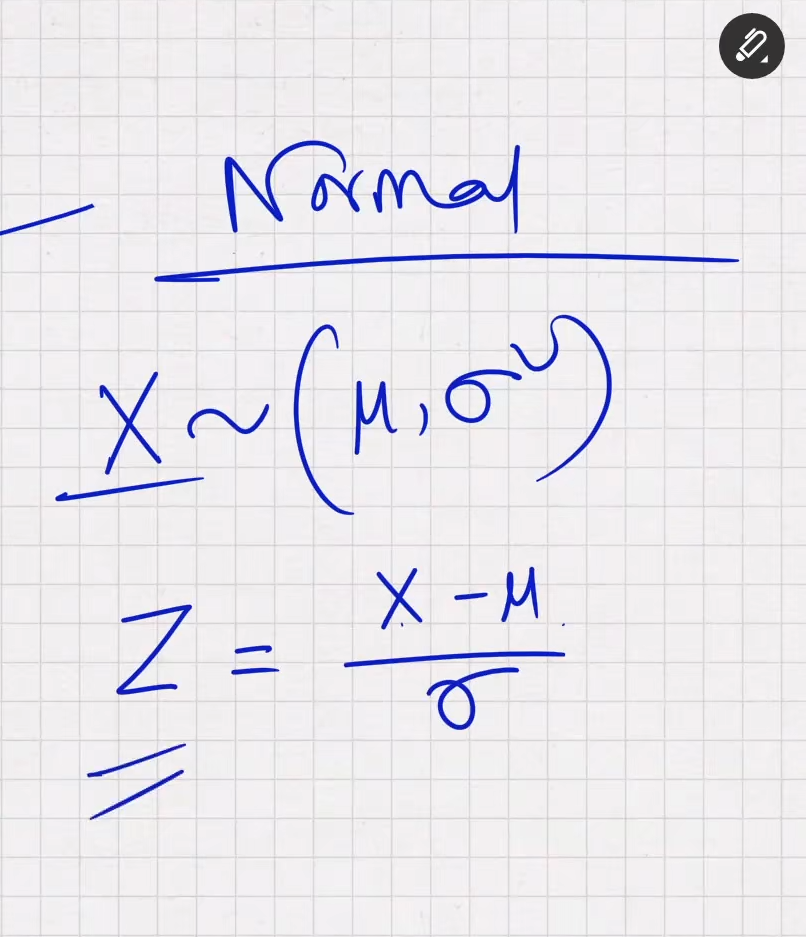 Normal
X ~ (μ, σ²)
Z = (X - μ) / σ